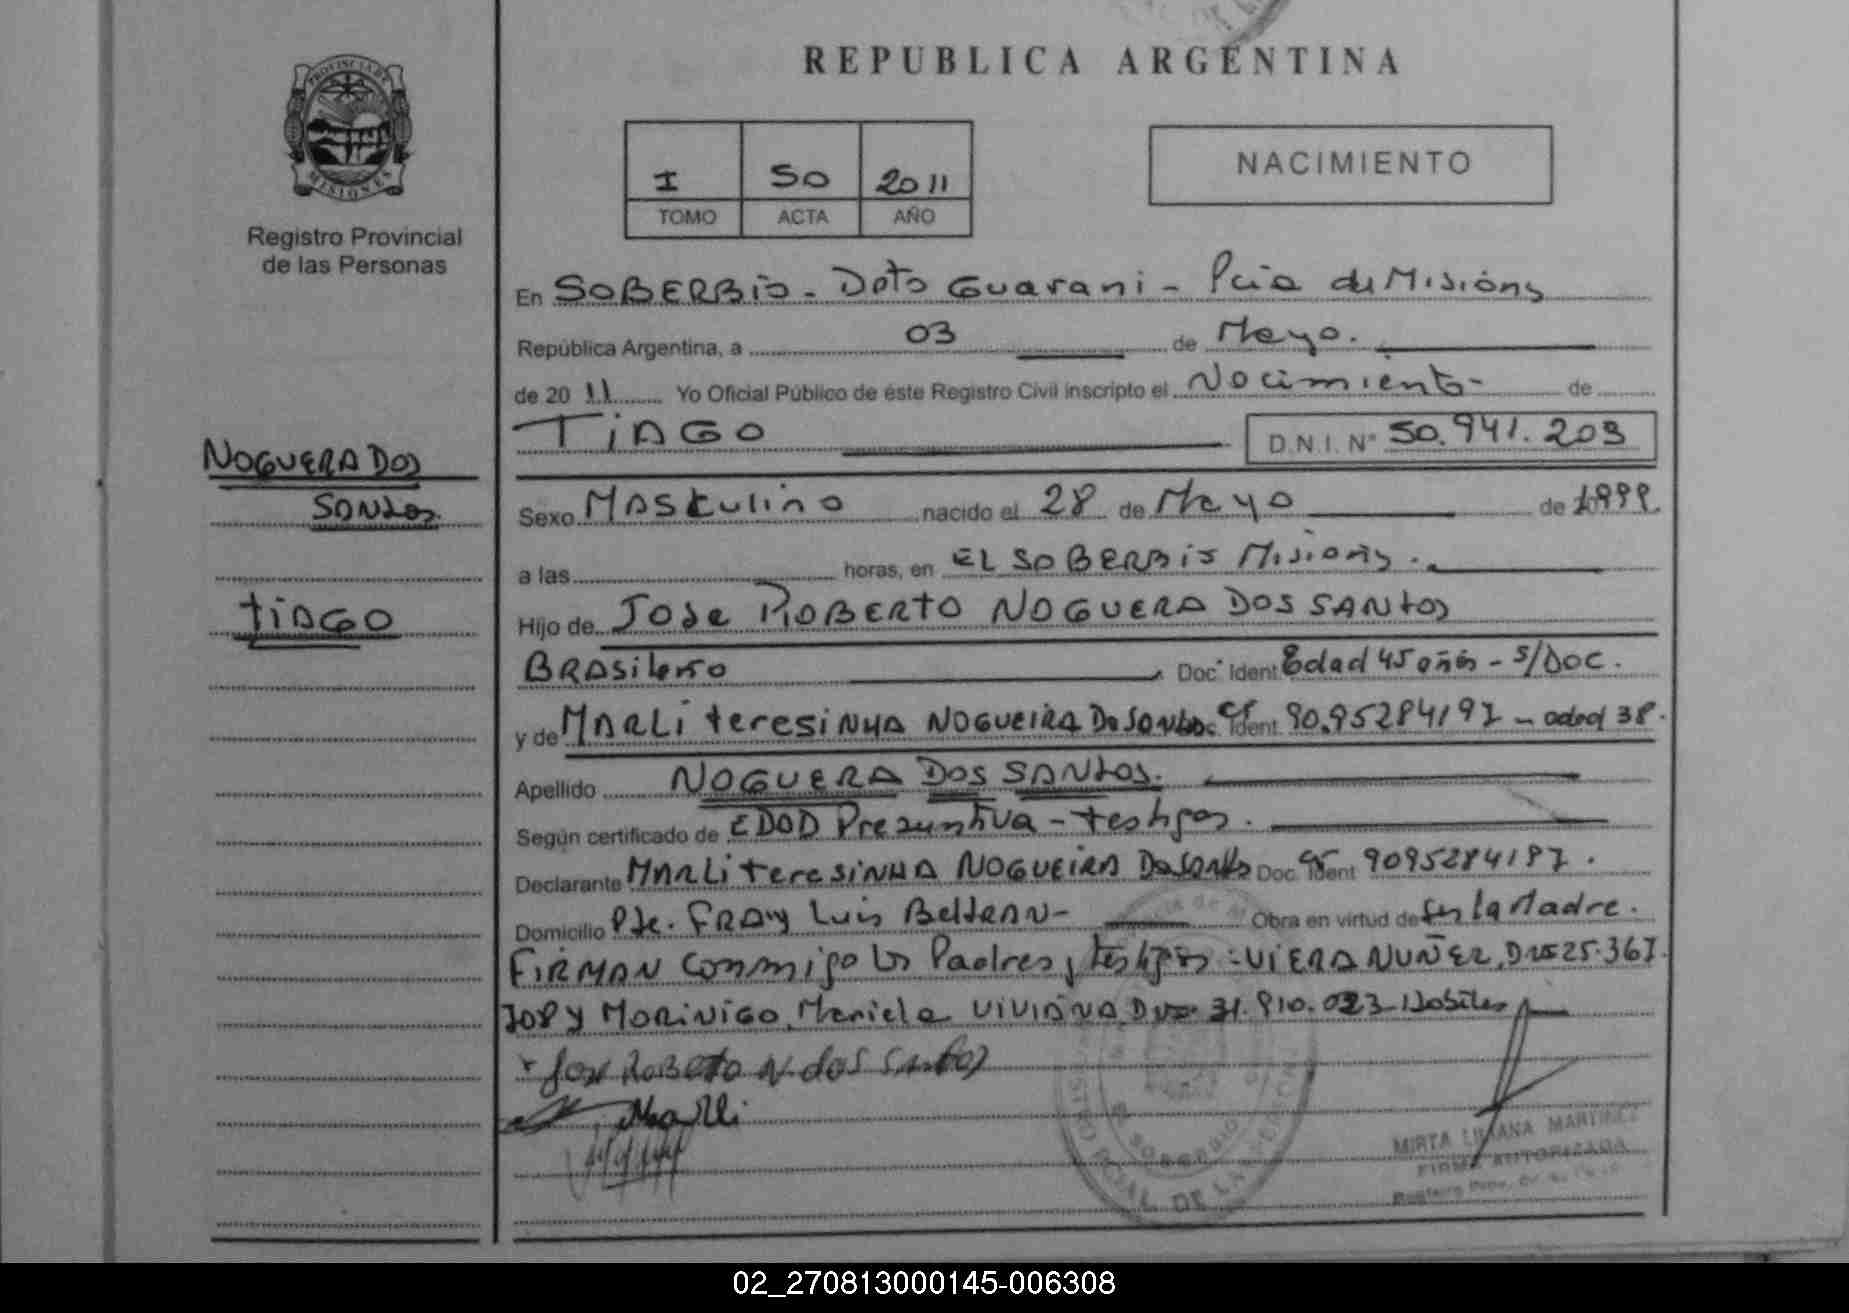 REPUBLICA ARGENTINA
PROVINCIA DE
MISIONES
Registro Provincial
de las Personas
I 50 2011
TOMO ACTA AÑO
NACIMIENTO
En SOBERBIO - Dpto Guarani - Pcia de Misiones
República Argentina, a 03 de Mayo.
de 20 11 Yo Oficial Público de éste Registro Civil inscripto el Nacimiento - de
TIAGO D.N.I. N° 50.941.203
NOGUERA DOS
SANTOS
TIAGO
Sexo Masculino nacido el 28 de Mayo de 1999
a las horas, en EL SOBERBIO Misiones.
Hijo de JOSE ROBERTO NOGUERA DOS SANTOS
BRASILERO Doc. Ident. Edad 45 años - S/Doc.
y de MARLI TERESINHA NOGUEIRA Dos Santos Ident. 90.95284197 - edad 38.
Apellido NOGUERA DOS SANTOS.
Según certificado de EDAD Presuntiva - testigos.
Declarante MARLI TERESINHA NOGUEIRA Dos Santos Doc. Ident 9095284197.
Domicilio Pje. FRAY Luis Beltran - Obra en virtud de Ser la Madre.
FIRMAN conmigo los Padres y testigos: VIERA NUÑEZ, 25.367.
708 y MORINIGO, Mariela VIVIANA 31.910.023 Habiles
Jose Roberto N. dos Santos
Marli
MIRTA LILIANA MARTINEZ
FIRMA AUTORIZADA
02_270813000145-006308